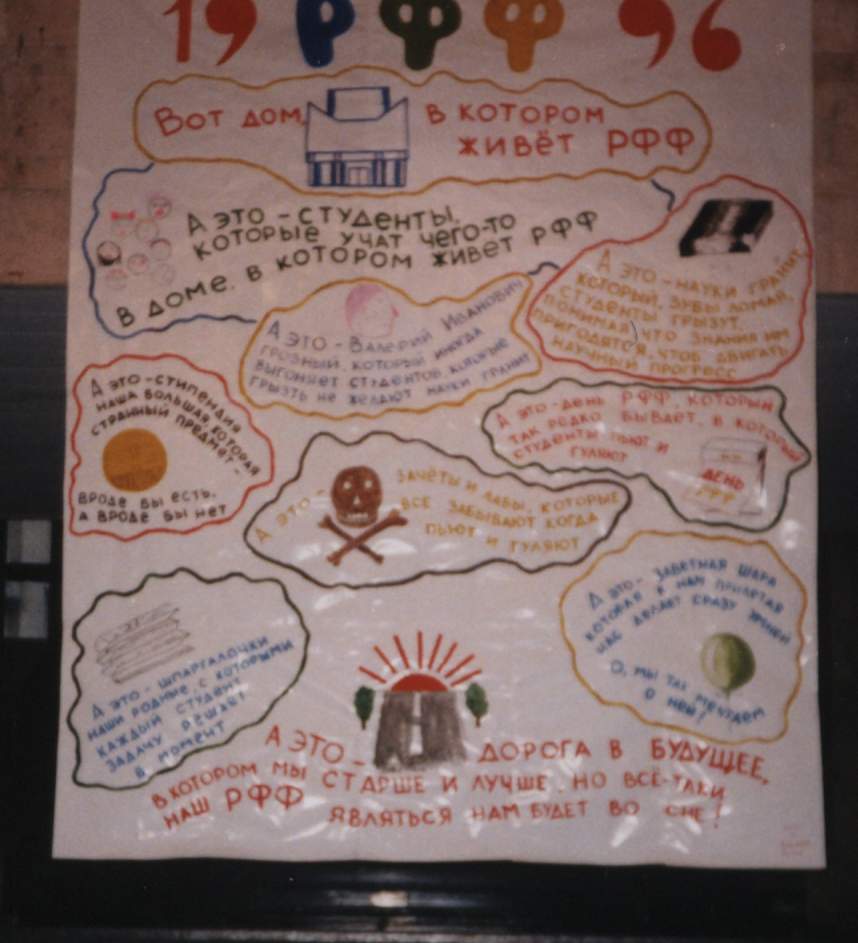 19 РФФ 96
Вот дом,
в котором
живёт РФФ
А это - студенты,
которые учат чего-то
в доме, в котором живет РФФ
А это - науки гранит,
который, зубы ломая,
студенты грызут,
понимая, что знания им
пригодятся, чтоб двигать
научный прогресс
А это - Валерий Иванович
грозный, который иногда
выгоняет студентов, которые
грызть не желают науки гранит
А это - стипендия
наша большая, которая
странный предмет -
вроде бы есть,
а вроде бы нет
А это - день РФФ, который
так редко бывает, в который
студенты пьют и
гуляют
День
РФФ
А это -
зачёты и лабы, которые
все забывают когда
пьют и гуляют
А это - шпаргалочки
наши родные, с которыми
каждый студент
задачу решает
в момент
А это - заветная шара
которая к нам прилетая
нас делает сразу
О, мы так мечтаем
о ней!
А это -
дорога в будущее,
в котором мы старше и лучше, но всё-таки
наш РФФ являться нам будет во сне!